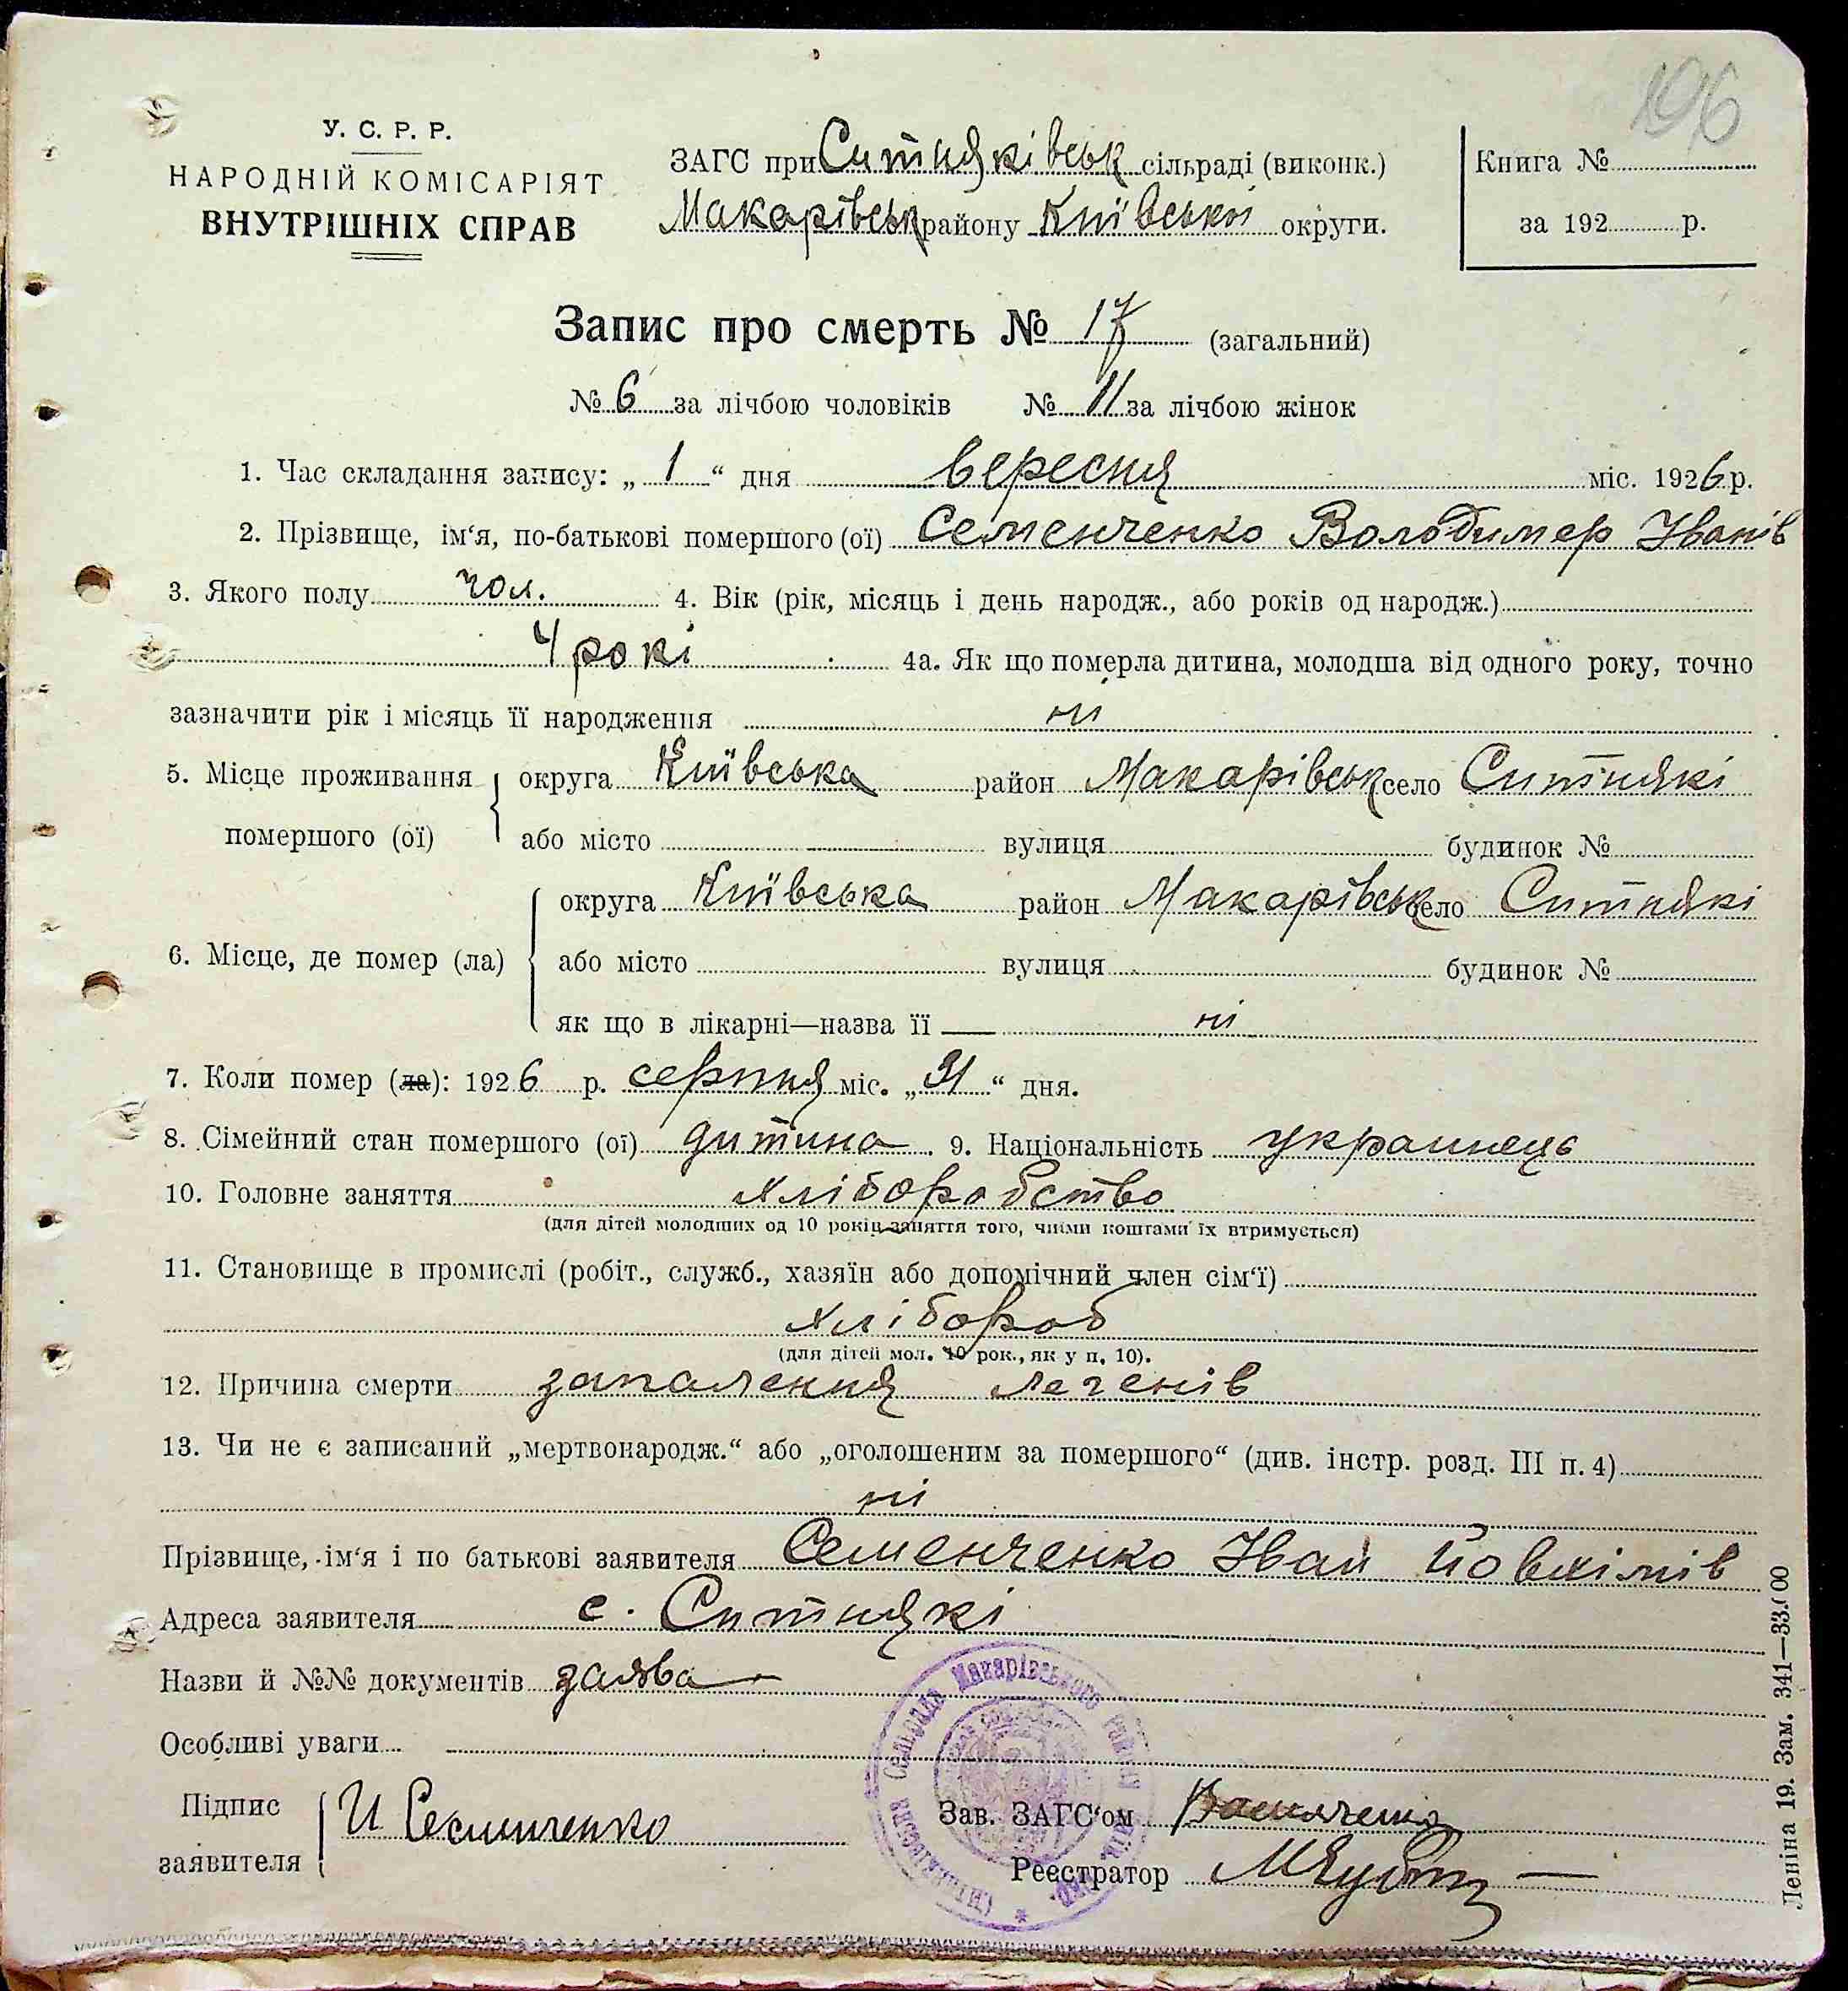 196
У. С. Р. Р.
НАРОДНІЙ КОМІСАРІЯТ
ВНУТРІШНІХ СПРАВ
ЗАГС при Ситняківськ сільраді (виконк.)
Макарівськ району Київської округи.
Книга №
за 192 р.
Запис про смерть № 17 (загальний)
№ 6 за лічбою чоловіків № 11 за лічбою жінок
1. Час складання запису: „ 1 “ дня вересня міс. 1926 р.
2. Прізвище, ім‘я, по-батькові помершого (ої) Семенченко Володимер Іванів
3. Якого полу чол. 4. Вік (рік, місяць і день народж., або років од народж.)
4 рокі 4а. Як що померла дитина, молодша від одного року, точно
зазначити рік і місяць її народження ні
5. Місце проживання помершого (ої) округа Київська район Макарівськ село Ситнякі
або місто вулиця будинок №
6. Місце, де помер (ла) округа Київська район Макарівськ село Ситнякі
або місто вулиця будинок №
як що в лікарні—назва її — ні
7. Коли помер (ла): 1926 р. серпня міс. „ 31 “ дня.
8. Сімейний стан помершого (ої) дитина 9. Національність украинець
10. Головне заняття хліборобство
(для дітей молодших од 10 років заняття того, чиїми коштами їх втримується)
11. Становище в промислі (робіт., служб., хазяїн або допомічний член сім‘ї)
хлібороб
(для дітей мол. 10 рок., як у п. 10).
12. Причина смерти запалення легенів
13. Чи не є записаний „мертвонародж.“ або „оголошеним за помершого“ (див. інстр. розд. III п. 4)
ні
Прізвище, ім‘я і по батькові заявителя Семенченко Іван Йовхімів
Адреса заявителя с. Ситнякі
Назви й №№ документів заява
Особливі уваги
Підпис заявителя И Семенченко
Зав. ЗАГС‘ом
Реєстратор
Ситняківська Сільрада Макарівського району
Леніна 19. Зам. 341—33.000